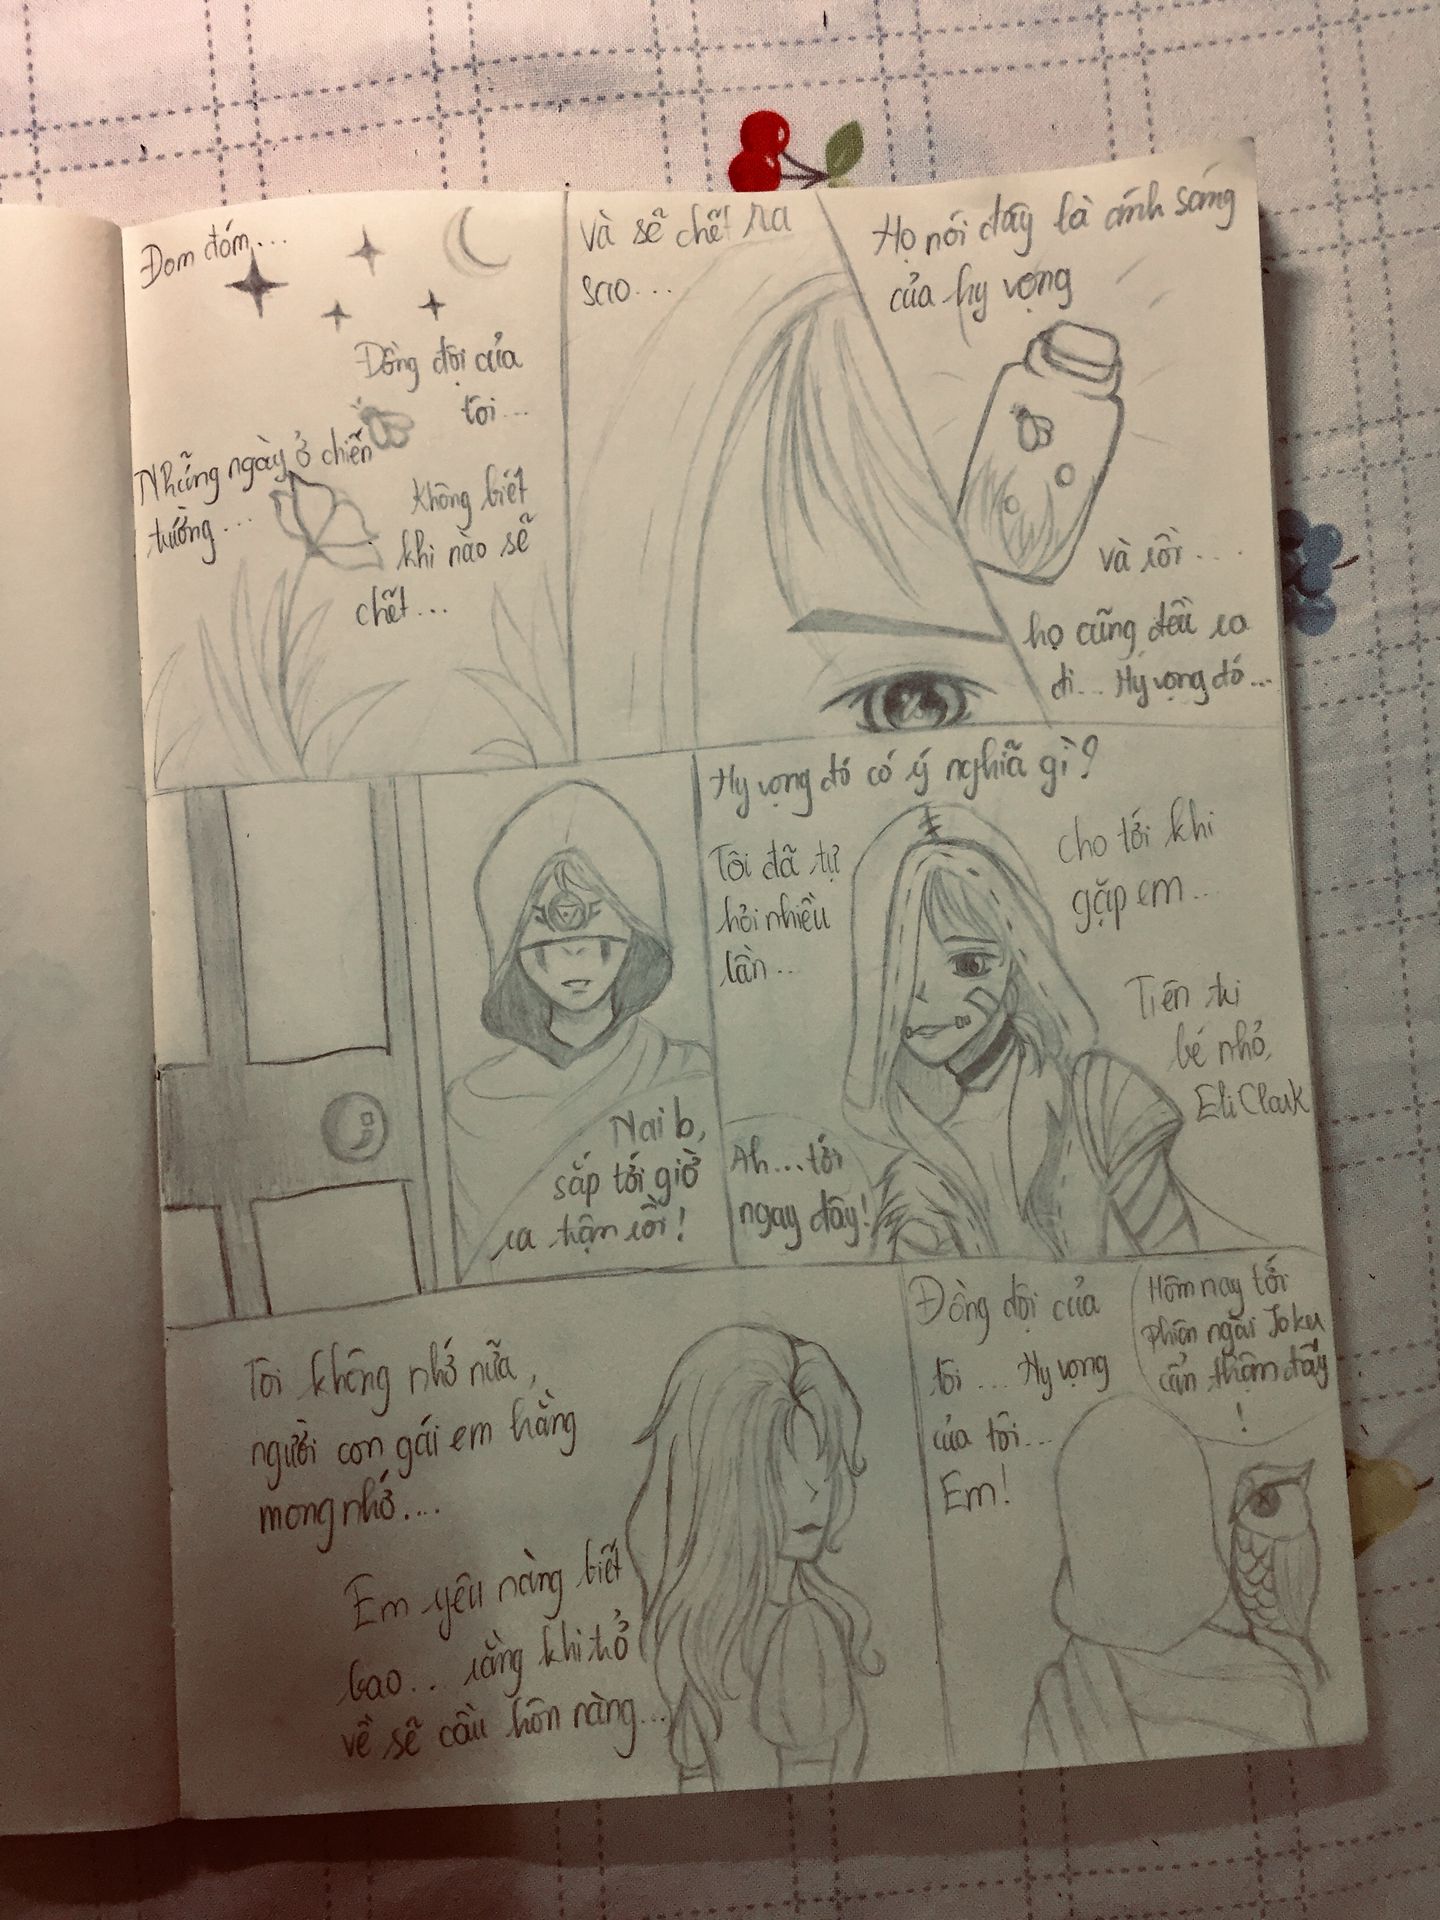 Đom đóm...
Đồng đội của
tôi...
Những ngày ở chiến
trường...
Không biết
khi nào sẽ
chết...
và sẽ chết ra
sao...
Họ nói đấy là ánh sáng
của hy vọng
và rồi...
họ cũng đều ra
đi... Hy vọng đó...
Naib,
sắp tới giờ
ra trận rồi!
Hy vọng đó có ý nghĩa gì?
Tôi đã tự
hỏi nhiều
lần...
cho tới khi
gặp em...
Tiên tri
bé nhỏ,
Eli Clark
Ah...tới
ngay đây!
Tôi không nhớ nữa,
người con gái em hằng
mong nhớ....
Em yêu nàng biết
bao... rằng khi trở
về sẽ cầu hôn nàng...
Đồng đội của
tôi... Hy vọng
của tôi...
Em!
Hôm nay tới
phiên ngài Joker
cẩn thận đấy
!